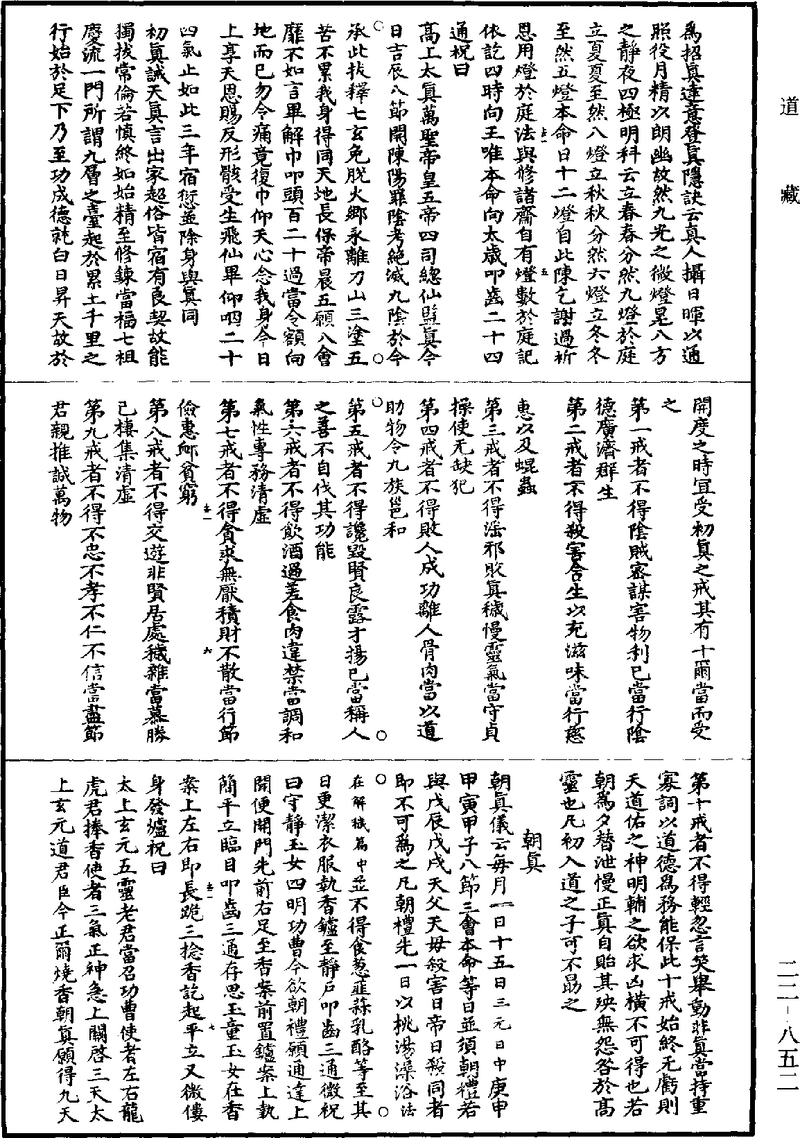 道藏
為招真達意登真隱訣云真人攝日暉以通
照役月精以朗幽故然九光之微燈晃八方
之靜夜四極明科云立春春分然九燈於庭
立夏夏至然八燈立秋秋分然六燈立冬冬
至然五燈本命日十二燈自此陳乞謝過祈
恩用燈於庭法與修諸齋自有燈數於庭記
依訖四時向王唯本命向太歲叩齒二十四
通祝曰
高上太真萬聖帝皇五帝四司總仙監真今
日吉辰八節開陳陽罪陰考絕滅九陰於今
承此拔釋七玄免脫火鄉永離刀山三塗五
苦不累我身得同天地長保帝晨五願八會
靡不如言畢解巾叩頭百二十過當令額向
地而已勿令痛竟復巾仰天心念我身今日
上享天恩賜反形骸受生飛仙畢仰咽二十
四氣止如此三年宿愆並除身與真同
初真誡天真言出家超俗皆宿有良契故能
獨拔常倫若慎終如始精至修鍊當福七祖
慶流一門所謂九層之臺起於累土千里之
行始於足下乃至功成德就白日昇天故於
開度之時宜受初真之戒其有十爾當而受
之
第一戒者不得陰賊密謀害物利己當行陰
德廣濟群生
第二戒者不得殺害含生以充滋味當行慈
惠以及蜫蟲
第三戒者不得淫邪敗真穢慢靈氣當守貞
操使无缺犯
第四戒者不得敗人成功離人骨肉當以道
助物令九族邕和
第五戒者不得讒毀賢良露才揚己當稱人
之善不自伐其功能
第六戒者不得飲酒過差食肉違禁當調和
氣性專務清虛
第七戒者不得貪求無厭積財不散當行節
儉惠卹貧窮
第八戒者不得交遊非賢居處穢雜當慕勝
己棲集清虛
第九戒者不得不忠不孝不仁不信當盡節
君親推誠萬物
第十戒者不得輕忽言笑舉動非真當持重
寡詞以道德為務能保此十戒始終无虧則
天道佑之神明輔之欲求凶橫不可得也若
朝為夕替泄慢正真自貽其殃無怨咎於高
靈也凡初入道之子可不勗之
朝真
朝真儀云每月一日十五日三元日中庚申
甲寅甲子八節三會本命等日並須朝禮若
與戊辰戊戌天父天母殺害日帝日殺同者
即不可為之凡朝禮先一日以桃湯澡浴法
在解穢篇中並不得食蔥韮蒜乳酪等至其
日更潔衣服執香鑪至靜戶叩齒三通微祝
曰守靜玉女四明功曹今欲朝禮願通達上
聞便開門先前右足至香案前置鑪案上執
簡平立臨目叩齒三通存思玉童玉女在香
案上左右即長跪三捻香訖起平立又微僂
身發爐祝曰
太上玄元五靈老君當召功曹使者左右龍
虎君捧香使者三氣正神急上關啓三天太
上玄元道君臣今正爾燒香朝真願得九天
二二-八五二